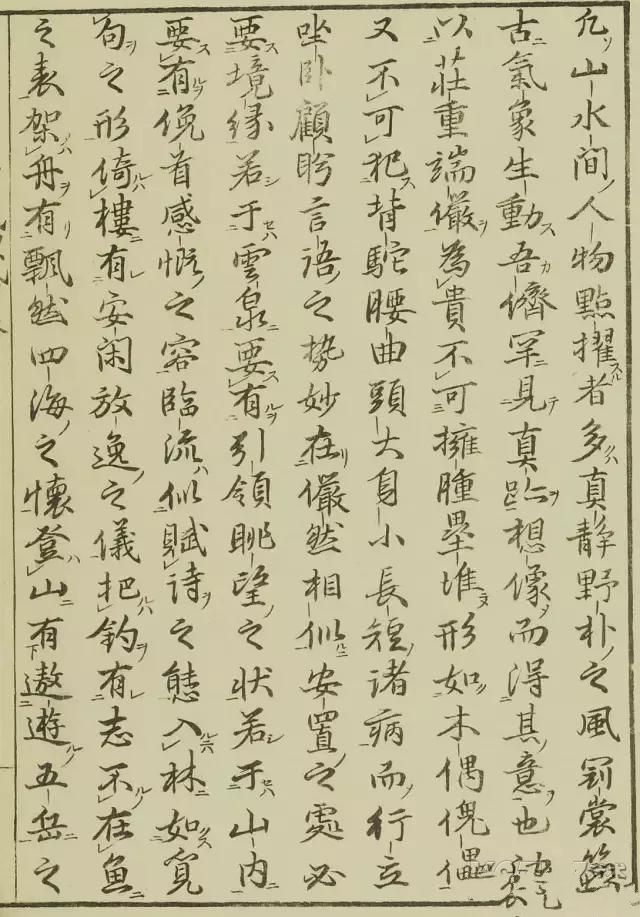 凡山水間人物點擢者多真靜野朴之風
古氣象生動吾儕罕見真跡想像而得其意也
以莊重端儼為貴不可擁腫壘堆形如木偶傀儡
又不可犯背駝腰曲頭大身小長短諸病而行立
坐卧顧盻言語之勢妙在儼然相似安置之處必
要境緣若于雲泉要有引領眺望之状若于山内
要有俛首感慨之容臨流似賦詩之態入林如覓
句之形倚樓有安閑放逸之儀把釣有志不在魚
之表架舟有飄然四海之懷登山有遨遊五岳之